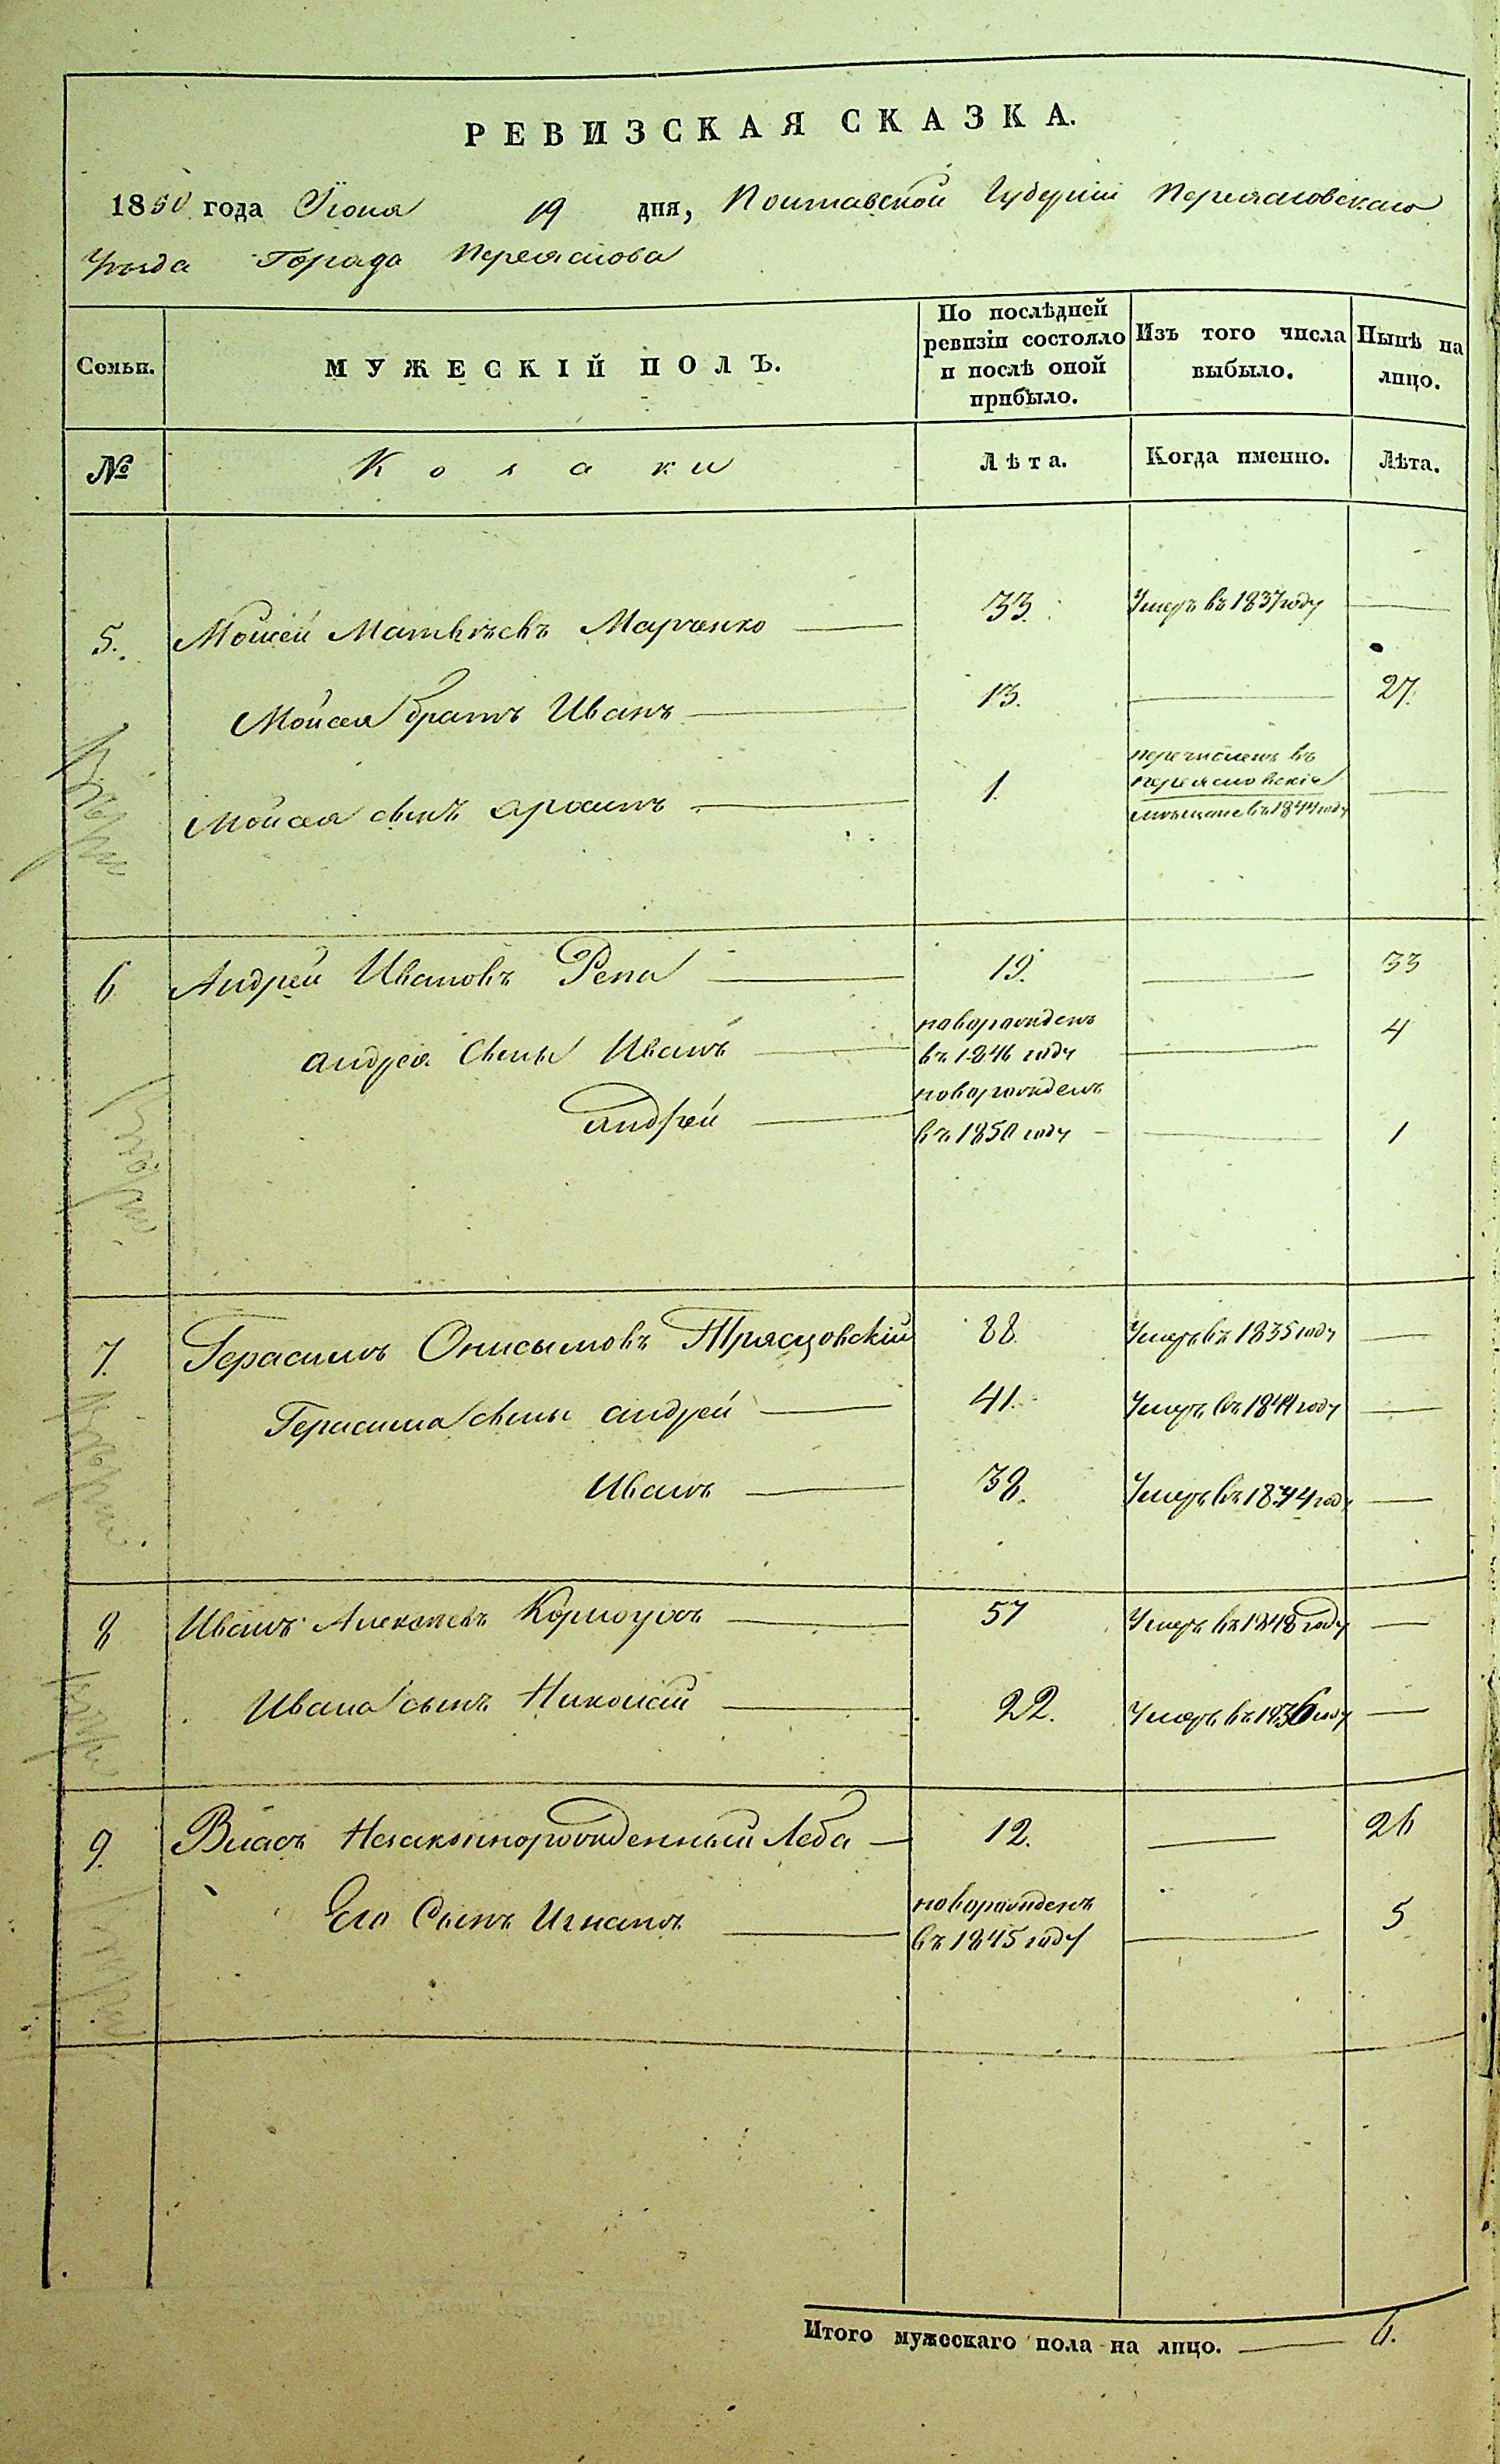 РЕВИЗСКАЯ СКАЗКА.
1850 года Іюня 19 дня, Полтавской Губерніи Переяславскаго
Уѣзда Города Переяслова
Семьи. МУЖЕСКІЙ ПОЛЪ. По послѣдней ревизіи состояло и послѣ оной прибыло. Изъ того числа выбыло. Нынѣ на лицо.
№ Козаки Лѣта. Когда именно. Лѣта.
5. Мойсей Матвѣевъ Марченко 33. Умеръ въ 1837 году
Мойсея братъ Иванъ 13. 27.
Мойсея сынъ 1. перечисленъ въ переясловскіе мѣщане въ 1844 году
6 Андрей Ивановъ Репа 19. 33
Андрея сыны Иванъ новорожденъ въ 1846 году 4
Андрей новорожденъ въ 1850 году 1
7. Герасимъ Онисымовъ Трясцовскій 88. Умеръ въ 1835 году
Герасима сыны Андрей 41. Умеръ въ 1844 году
Иванъ 38. Умеръ въ 1844 году
8 Иванъ Алексѣевъ 57 Умеръ въ 1848 году
Ивана сынъ Николай 22. Умеръ въ 1836 году
9. Власъ Незаконнорожденный Леба 12. 26
Его Сынъ Игнатъ новорожденъ въ 1845 году 5
Итого мужескаго пола на лицо. 6.